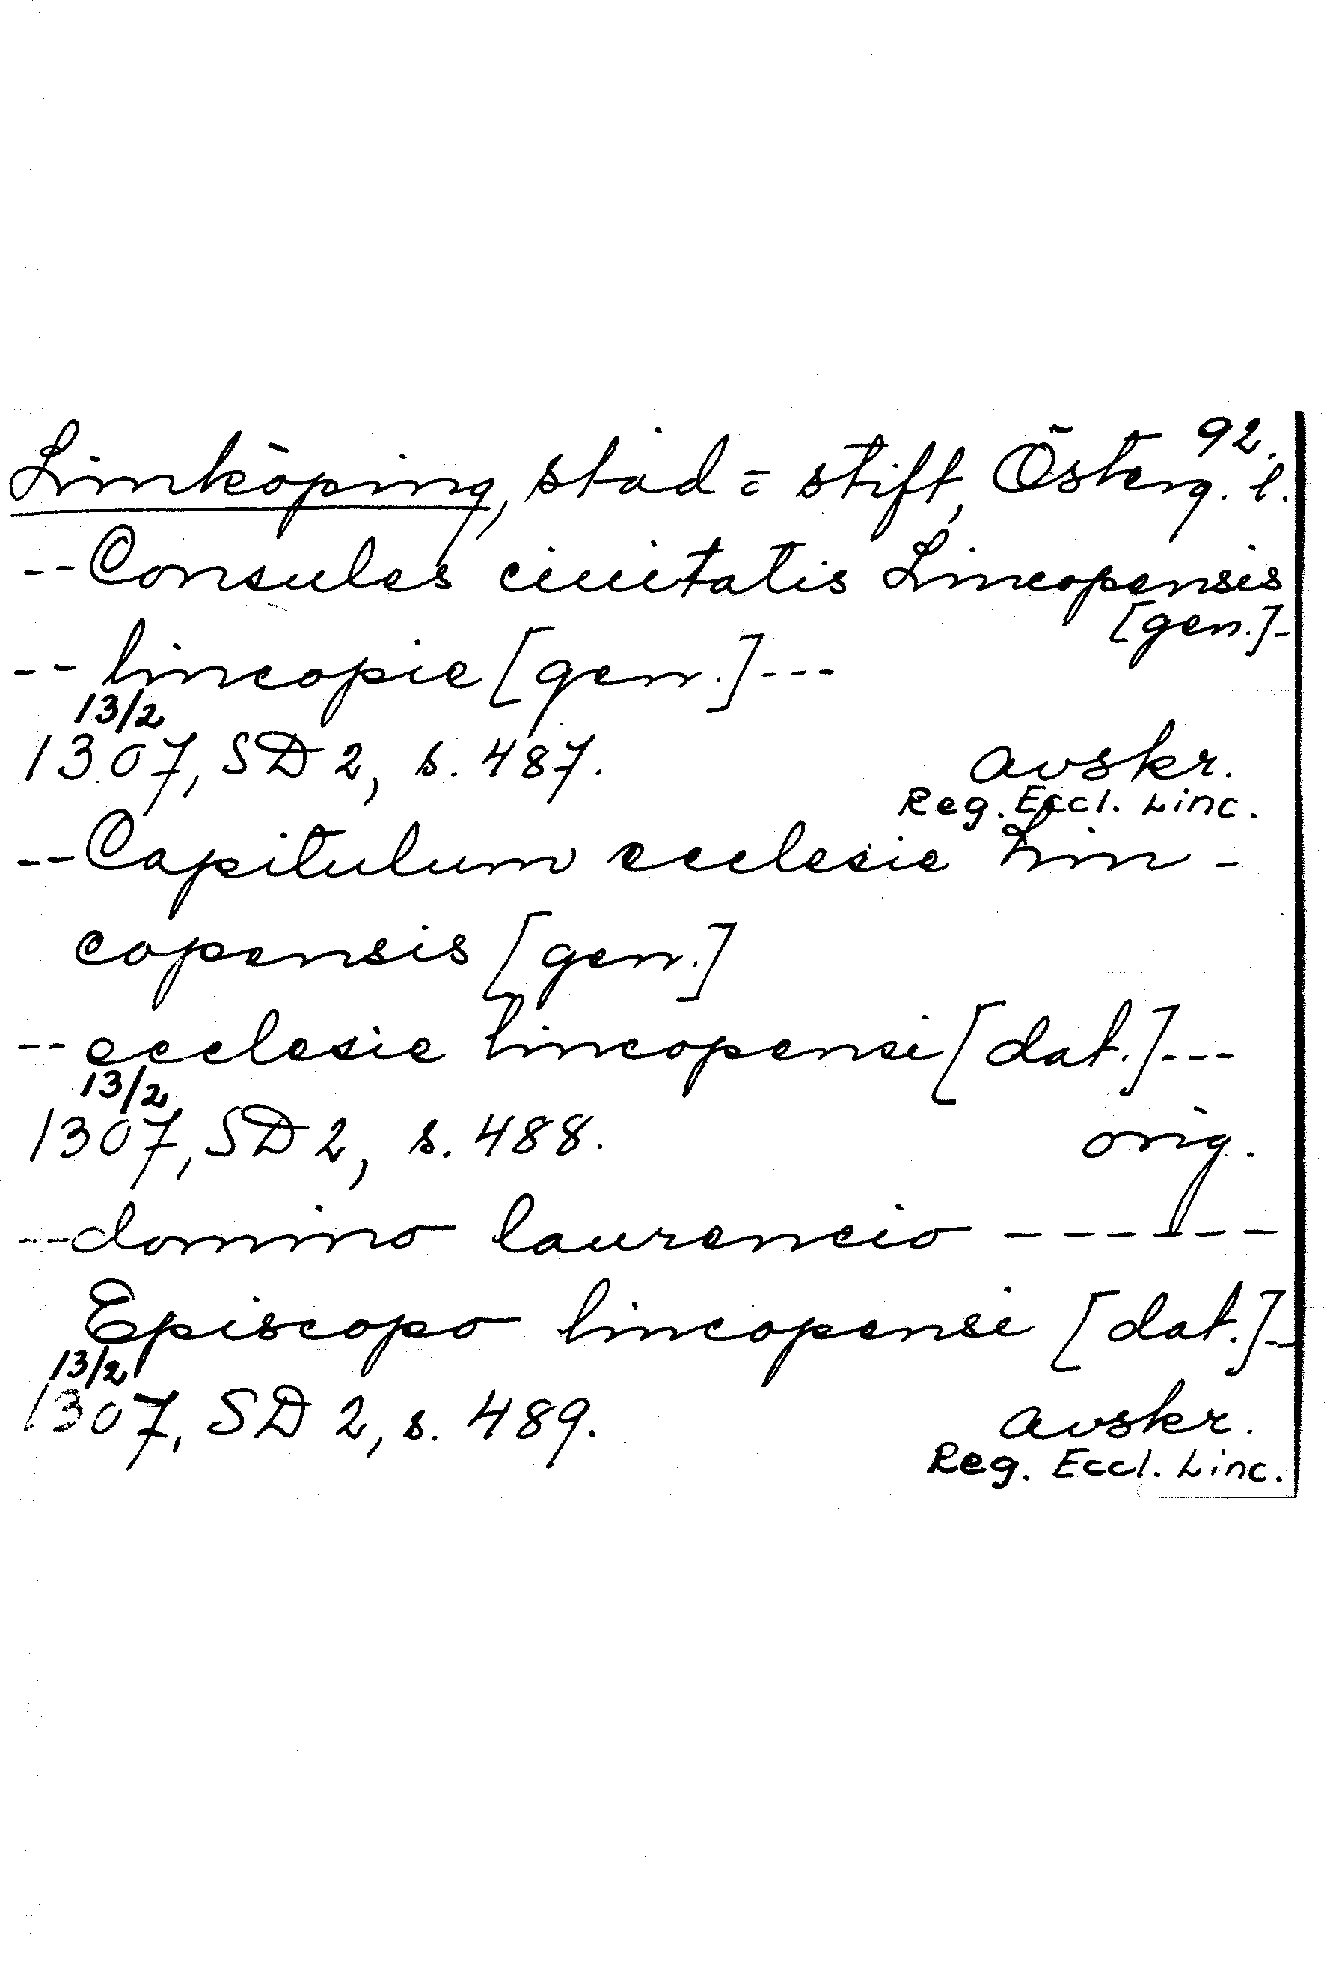 92.
Linköping, stad = stift, Österg. l.
-- Consules ciuitatis Lincopensis
[gen.]-
-- lincopie [gen.] ---
13/2
1307, SD 2, s. 487. avskr.
Reg. Eccl. Linc.
-- Capitulum ecclesie Lin-
copensis [gen.]
-- ecclesie lincopensi [dat.] ---
13/2
1307, SD 2, s. 488. orig.
-- domino laurencio ------
Episcopo lincopensi [dat.]-
13/2
1307, SD 2, s. 489. avskr.
Reg. Eccl. Linc.